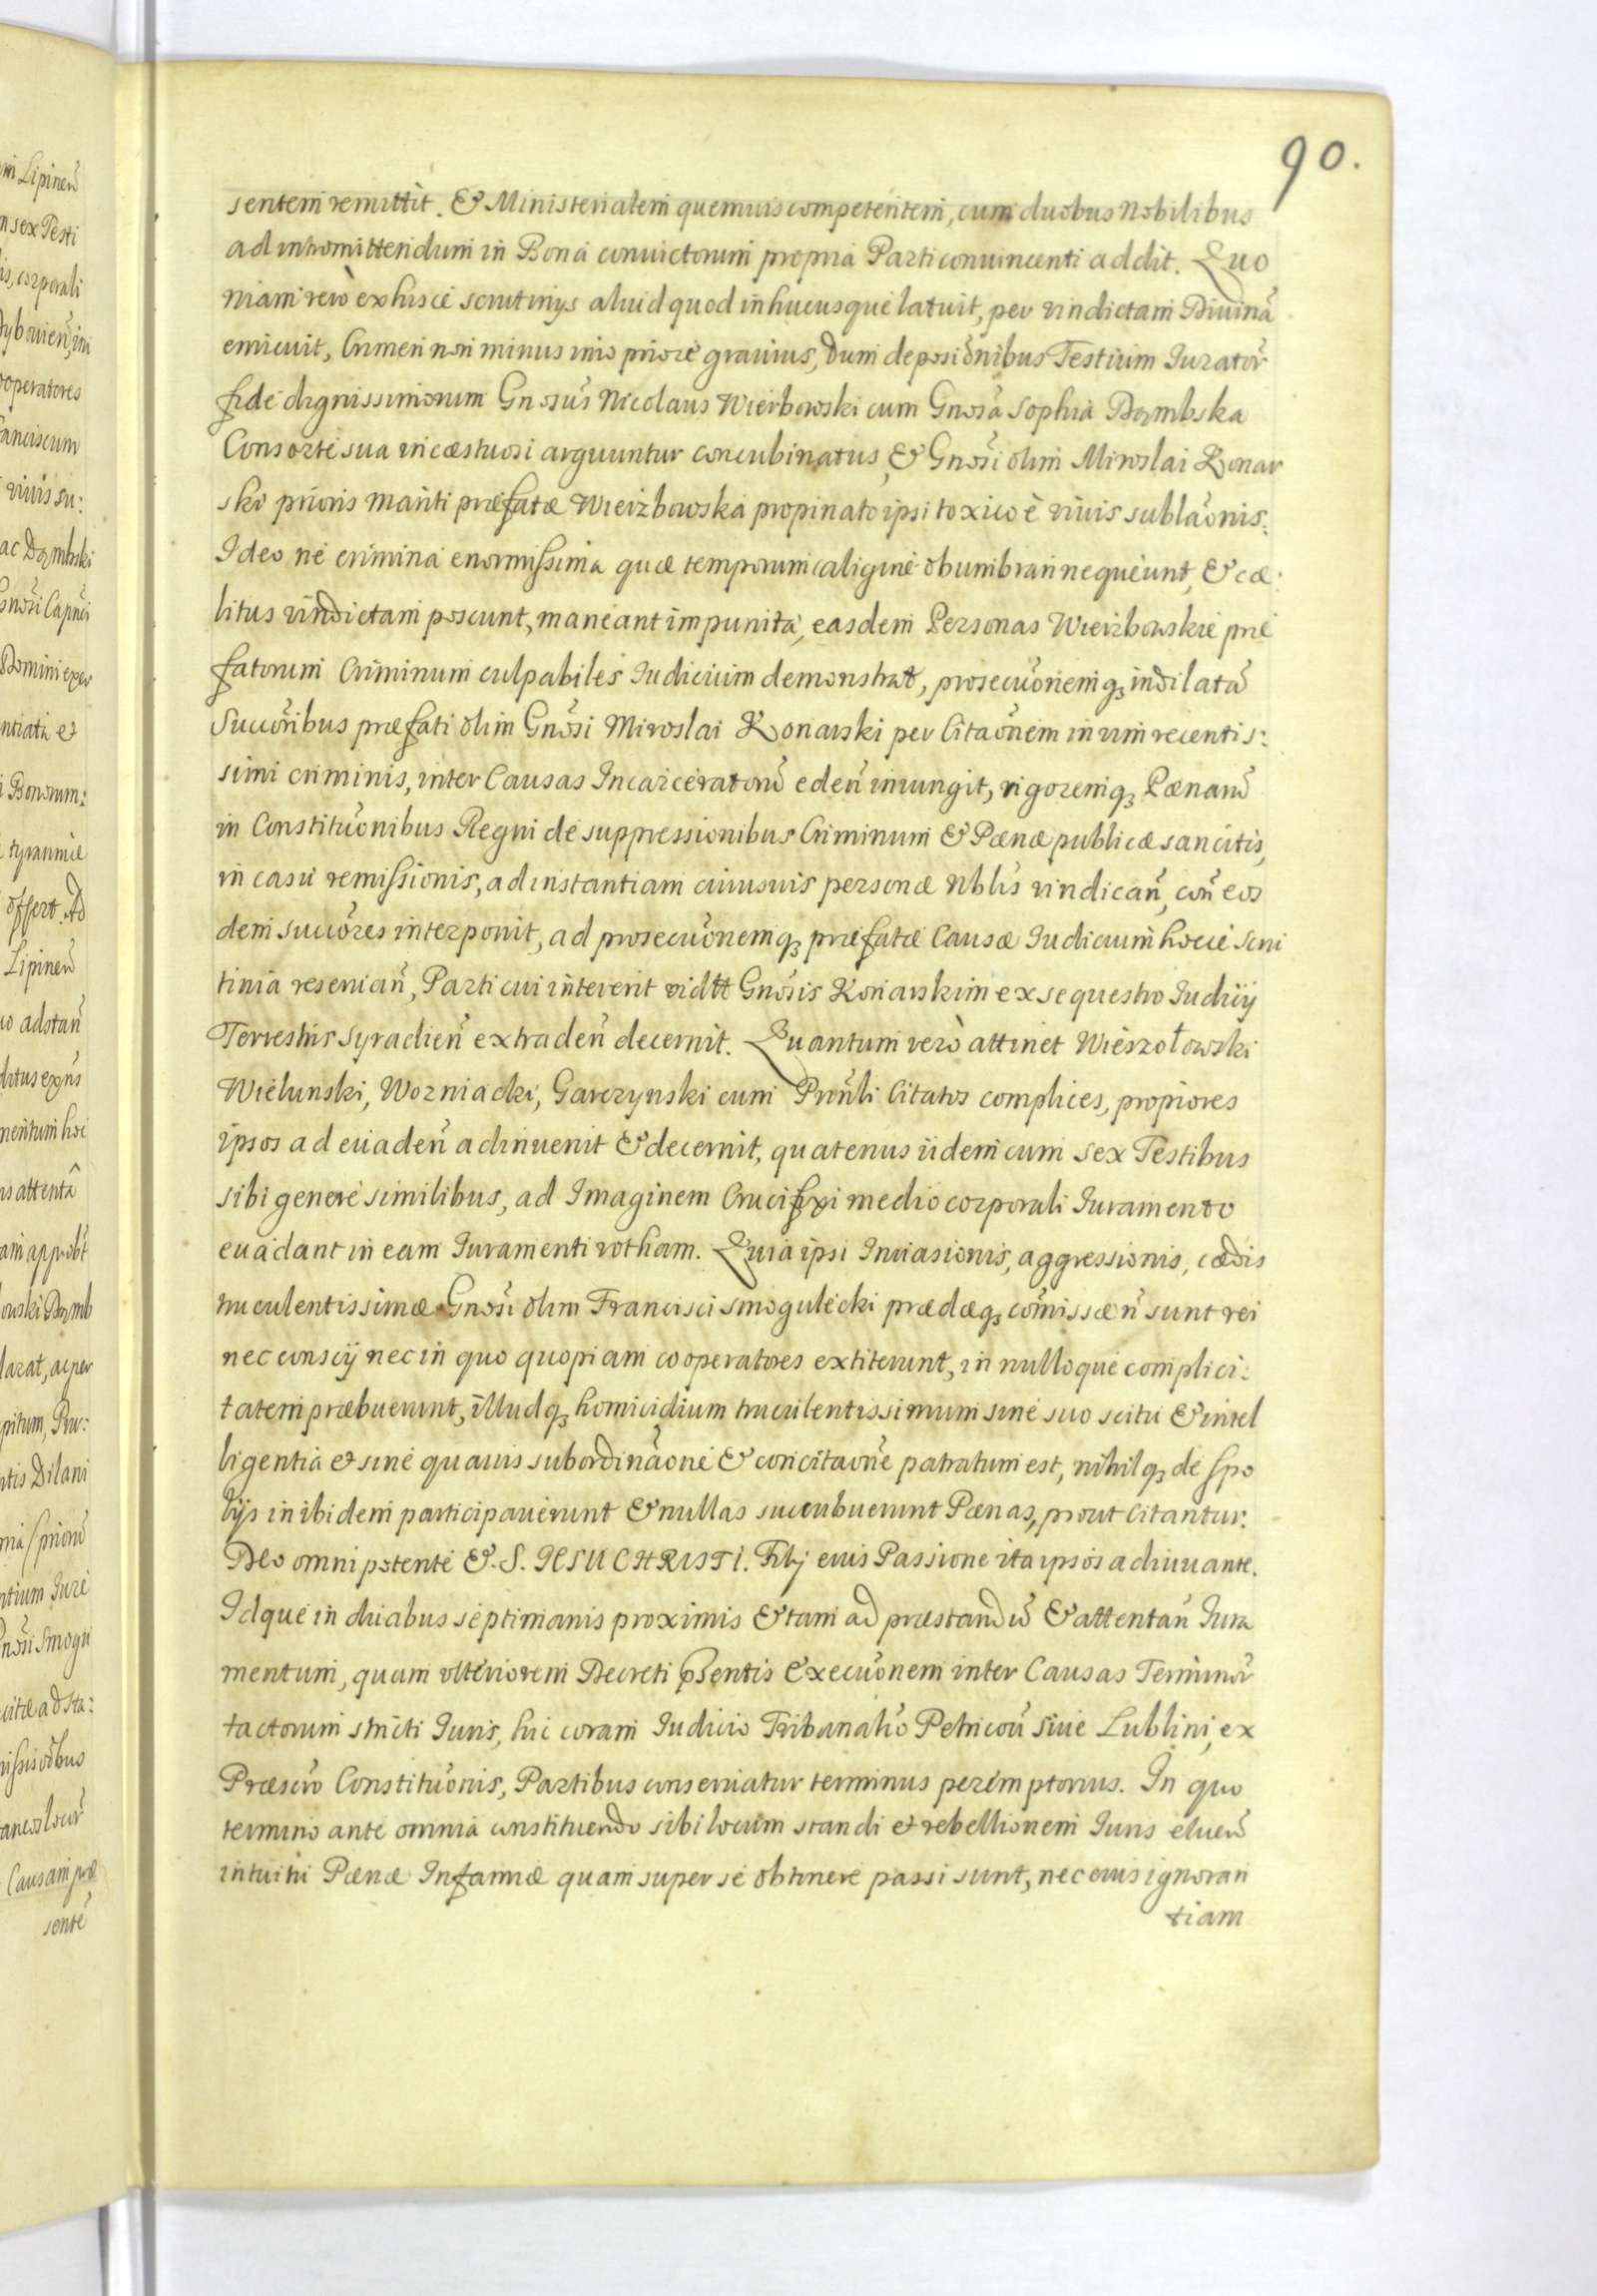 90.
sentem remittit. & Ministerialem quemuis competentem, cum duobus Nobilibus
ad intromittendum in Bona conuictorum propria Parti conuincenti addit. Quo
niam verò ex hisce scrutinys aliud quod inhucusque latuit, per vindictam Diuinã
emicuit, Crimen non minus imo priore grauius, dum deposiõnibus Testium Iuratoř
fide dignissimorum Gnosus Nicolaus Wierbowski cum Gnosa Sophia Dąmbska
Consorte sua incæstuosi arguuntur concubinatus, & Gnosi olim Miroslai Konar
ski prioris mariti præfatæ Wierzbowska propinato ipsi toxico è viuis sublaõnis.
Ideo ne crimina enormissima quæ temporum caligine obumbrari nequeunt, & cæ:
litus vindictam poscunt, maneant impunita, easdem Personas Wierzbowskie præ
fatorum Criminum culpabiles Iudicium demonstrat, prosecuõnemq; indilatã
Succõribus præfati olim Gnõsi Miroslai Konarski per Citaõnem in vim recentis:
simi criminis, inter Causas Incarceratorũ edeñ iniungit, rigoremq; Pænarũ
in Constituõnibus Regni de suppressionibus Criminum & Pænæ publicæ sancitis,
in casu remissionis, ad instantiam cuiusuis personæ Nblis vindicañ, coñ eos
dem succõres interponit, ad prosecuõnemq; præfatæ Causæ Iudicium hocce scru
tinia reseruañ, Parti cui intererit vidtt Gnõsis Konarskim ex sequestro Iudicij
Terrestris Syradieñ extradeñ decernit. Quantum verò attinet Wieszołowski
Wielunski, Wozniacki, Garczynski cum Prinčli Citatos complices, propiores
ipsos ad euadeñ adinuenit & decernit, quatenus iidem cum sex Testibus
sibi genere similibus, ad Imaginem Crucifixi medio corporali Iuramento
euadant in eam Iuramenti rotham. Quia ipsi Inuasionis, aggressionis, cædis
truculentissimæ Gnosi olim Francisci Smogulecki prædæq; comissæ ñ sunt rei
nec conscij nec in quo quopiam cooperatores extiterunt, in nulloque complici:
tatem præbuerunt, illudq; homicidium truculentissimum sine suo scitu & intel
ligentia et sine quauis subordinaõne & concitaõne patratum est, nihilq; de spo
lijs inibidem participauerunt & nullas succubuerunt Pænas, prout Citantur.
Deo omnipotente &. S. IESU CHRISTI. Filij eius Passione ita ipsos adiuuante.
Idque in duabus septimanis proximis & tam ad præstandũ & attentañ Iura
mentum, quam vlteriorem Decreti pñsentis Execuõnem inter Causas Terminoř
tactorum stricti Iuris, hic coram Iudicio Tribunaliõ Petricoũ siue Lublini, ex
Præscro Constituõnis, Partibus conseruatur terminus peremptorius. In quo
termino ante omnia constituendo sibi locum standi et rebellionem Iuris elueñ
intuitu Pænæ Infamiæ quam super se obtinere passi sunt, nec eius ignoran
tiam